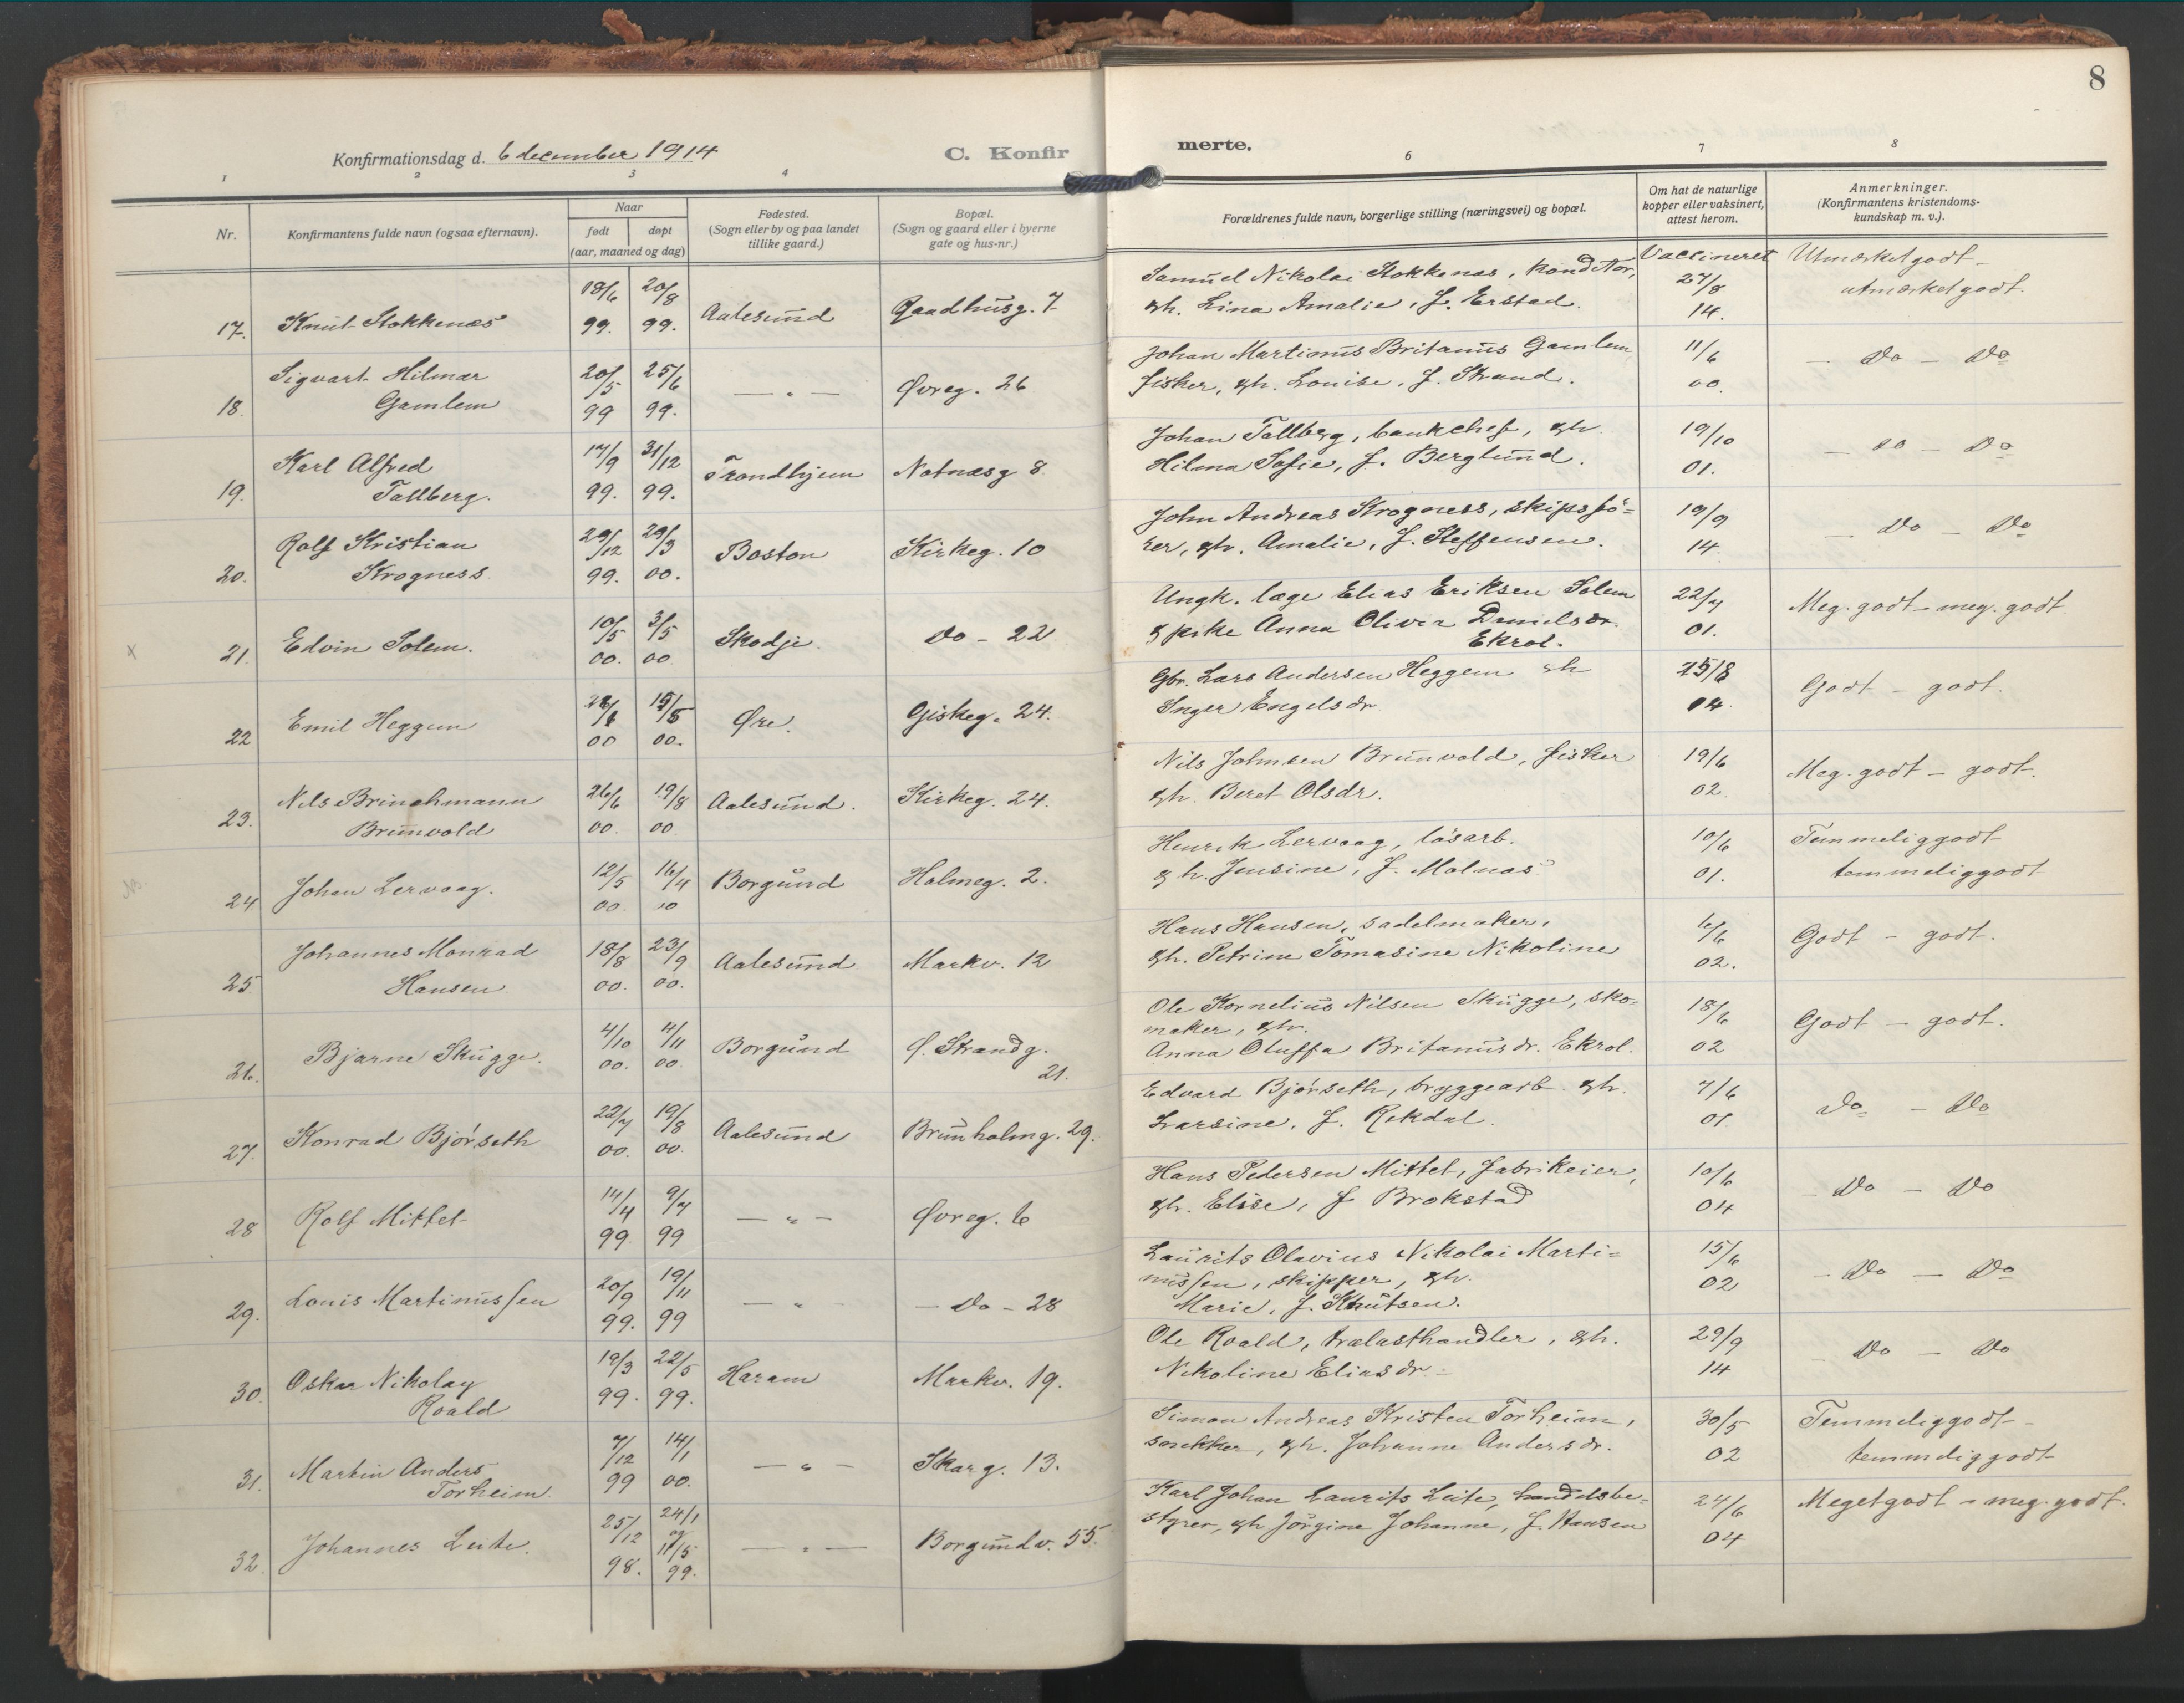 8
Konfirmationsdag d. 6 december 1914
C. Konfirmerte.
1 2 3 4 6 7 8
Nr.
Konfirmantens fulde navn (ogsaa efternavn).
Naar
født døpt
(aar, maaned og dag)
Fødested.
(Sogn eller by og paa landet
tillike gaard.)
Bopæl.
(Sogn og gaard eller i byerne
gate og hus-nr.)
Forældrenes fulde navn, borgerlige stilling (næringsvei) og bopæl.
Om hat de naturlige
kopper eller vaksinert,
attest herom.
Anmerkninger.
(Konfirmantens kristendoms-
kundskap m. v.).
17. Knut Stokkenes 18/6 99. 20/8 99. Aalesund Raadhusg. 7
Samuel Nikolai Stokkenes, konditor,
gh. Lina Amalie, f. Erstad.
Vaccineret 27/8 14.
Utmerket godt -
utmerket godt.
18. Sigvart Hilmar
Gamlem 20/5 99 25/6 99. — " — Øvreg. 26
Johan Martinus Britanus Gamlem
fisker, gh. Louise, f. Strand.
11/6 00.
— Do — Do
19. Karl Alfred
Tallberg. 17/9 99. 31/12 99. Trondhjem Notnæsg 8.
Johan Tallberg, bankchef, gh
Hilma Sofie, f. Berglund.
19/10 01.
— Do — Do
20. Rolf Kristian
Krogness 29/12 99. 29/3 00. Boston Kirkeg. 10
John Andreas Krogness, skipsfö=
rer, gh. Amalie, f. Steffensen.
19/9 14.
— Do — Do
x 21. Edvin Solem. 10/5 00. 3/5 00 Skodje. Do - 22
Ungk. læge Elias Eriksen Solem
& pike Anna Olivia Danielsdr.
Ekrol.
22/7 01.
Meg. godt - meg. godt
22 Emil Heggem 00 15/5 00. Øre. Giskeg. 24.
Gbr. Lars Andersen Heggem gh
Inger Engelsdr
25/8 04.
Godt - godt.
23. Nils Brinchmann
Brunvold 26/6 00. 19/8 00. Aalesund. Kirkeg. 24.
Nils Johnsen Brunvold, fisker
gh. Beret Olsdr.
19/6 02.
Meg. godt - godt.
24 Johan Lervaag. 12/5 00. 16/4 10 Borgund Holmeg. 2.
Henrik Lervaag, løsarb.
gh. Jensine, f. Molnes
10/6 01.
Temmelig godt
temmelig godt
25 Johannes Monrad
Hansen 18/8 00. 23/9 00. Aalesund Markv. 12
Hans Hansen, sadelmaker,
gh. Petrine Tomasine Nikoline
6/6 02.
Godt - godt.
26. Bjarne Skugge. 4/10 00. 4/11 00. Borgund Ø. Strandg.
21.
Ole Kornelius Nilsen Skugge, sko=
maker, gh.
Anna Oluffa Britanusdr. Ekrol.
18/6 02
Godt - godt.
27. Konrad Bjørseth 22/7 00. 19/8 00. Aalesund Brunholmg. 29.
Edvard Bjørseth, bryggearb. gh.
Larsine, f. Rekdal.
7/6 01.
Do - Do
28 Rolf Mittet 14/4 99. 9/7 99 — " — Øvreg. 6
Hans Pedersen Mittet, fabrikeier,
gh. Elise, f Brokstad
10/6 04
- Do - Do
29. Louis Martinussen 20/9 99. 19/11 99 — " - — Do - 28
Laurits Olavius Nikolai Marti=
nussen, skipper, gh.
Marie, f. Knutsen.
15/6 02
- Do — Do
30. Oskar Nikolay
Roald 19/3 99. 22/5 99. Haram Markv. 19.
Ole Roald, trælasthandler, gh.
Nikoline Eliasdr. -
29/9 14
- Do — Do
31. Martin Anders
Torheim. 7/12 99 14/1 00. — " — Skarg. 13.
Simon Andreas Kristen Torheim,
snekker, gh. Johanne Andersdr.
30/5 02
Temmelig godt -
temmelig godt
32. Johannes Leite. 25/12 98. 24/1 og 11/5 99. — " — Borgundv. 55.
Karl Johan Laurits Leite, handelsbe=
styrer, gh Jørgine Johanne, f. Hansen
24/6 04
Meget godt - meg. godt.